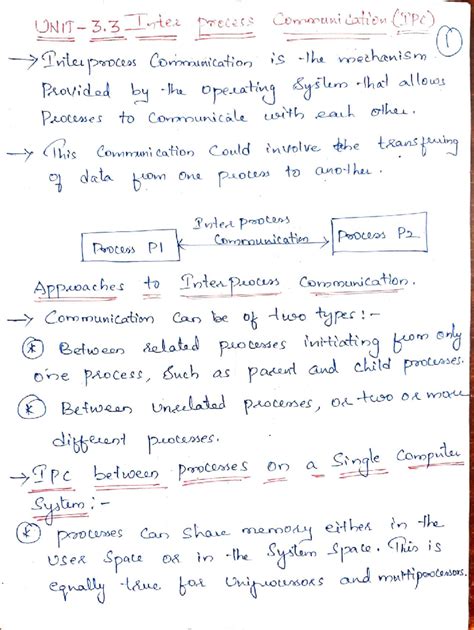 UNIT-3.3 Inter process Communication (IPC)
1
→ Interprocess Communication is the mechanism
Provided by the Operating System that allows
Processes to Communicate with each other.
→ This Communication Could involve the transferring
of data from one process to another.
Inter process
Process P1 Communication Process P2
Approaches to Interprocess Communication.
→ Communication Can be of two types:-
* Between related processes initiating from only
one process, Such as parent and child processes.
* Between Unrelated processes, or two or more
different processes.
→ IPC between processes on a Single Computer
System:-
* processes Can Share memory either in the
User Space or in the System Space. This is
equally true for Uniprocessors and multiprocessors.